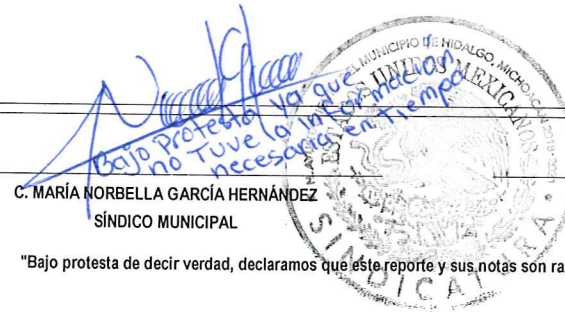 Bajo protesta ya que
no Tuve la informacion
necesaria en tiempo
MUNICIPIO DE HIDALGO, MICHOACAN 2018-2021
ESTADOS UNIDOS MEXICANOS
SINDICATURA
C. MARÍA NORBELLA GARCÍA HERNÁNDEZ
SÍNDICO MUNICIPAL
"Bajo protesta de decir verdad, declaramos que este reporte y sus notas son ra